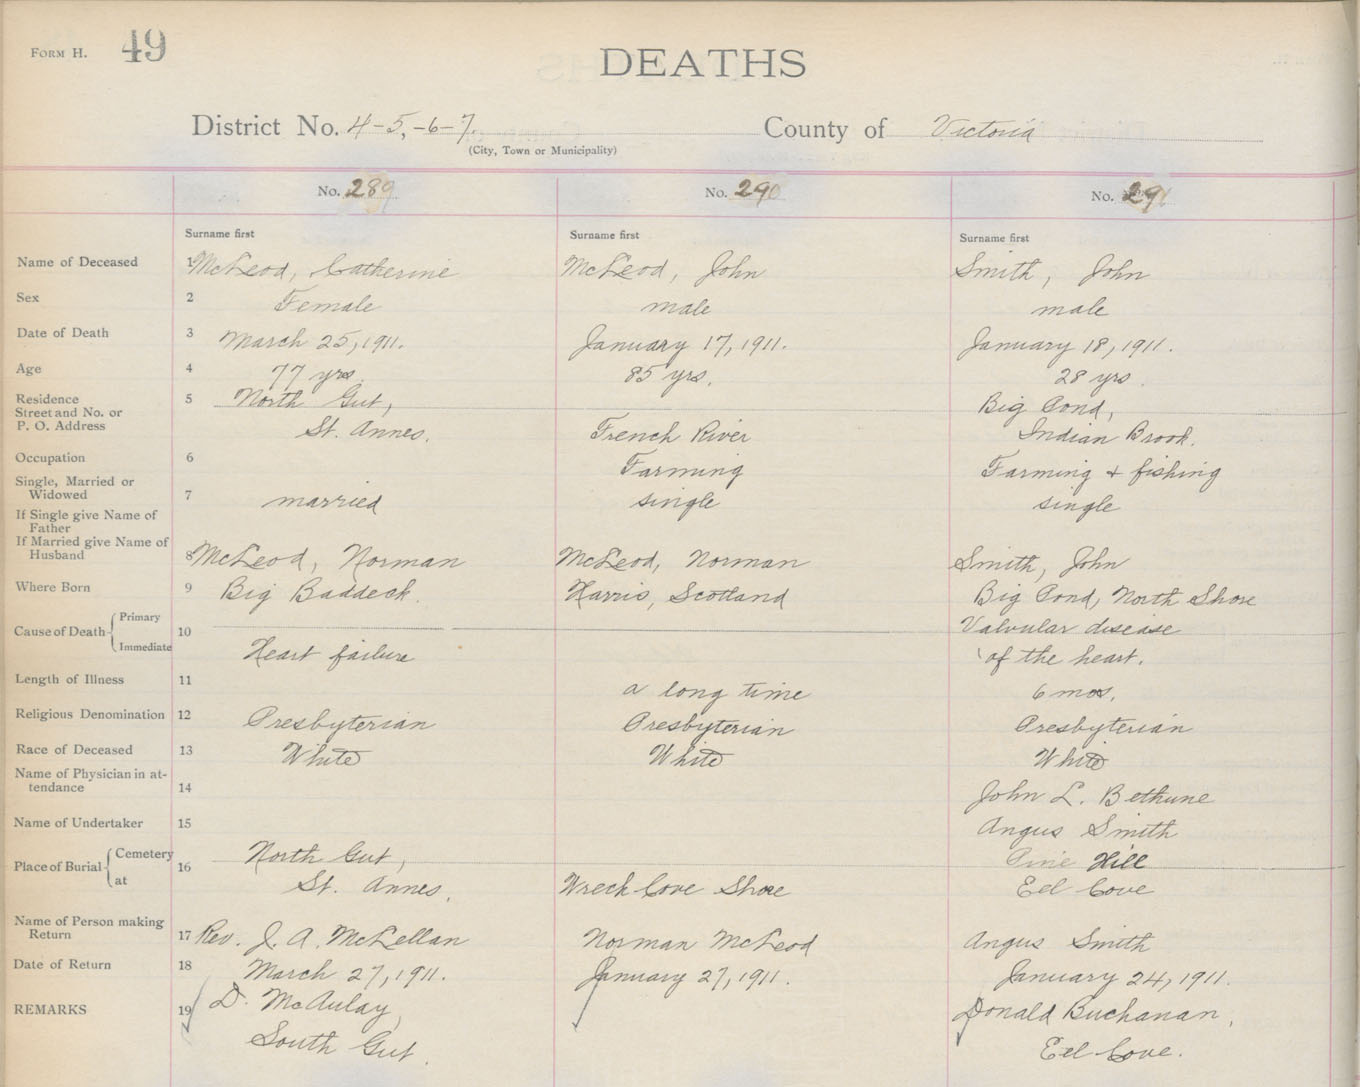 FORM H. 49
DEATHS
District No. 4-5,-6-7. County of Victoria
(City, Town or Municipality)
No. 289 No. 290 No. 291
Surname first Surname first Surname first
Name of Deceased 1 McLeod, Catherine McLeod, John Smith, John
Sex 2 Female male male
Date of Death 3 March 25, 1911. January 17, 1911. January 18, 1911.
Age 4 77 yrs. 85 yrs. 28 yrs.
Residence 5 North Gut, Big Pond,
Street and No. or
P. O. Address St. Annes. French River Indian Brook.
Occupation 6 Farming Farming + fishing
Single, Married or
Widowed 7 married single single
If Single give Name of
Father
If Married give Name of
Husband 8 McLeod, Norman McLeod, Norman Smith, John
Where Born 9 Big Baddeck. Harris, Scotland Big Pond, North Shore
Cause of Death Primary 10 Valvular disease
Immediate Heart failure of the heart.
Length of Illness 11 a long time 6 mos.
Religious Denomination 12 Presbyterian Presbyterian Presbyterian
Race of Deceased 13 White White White
Name of Physician in at-
tendance 14 John L. Bethune
Name of Undertaker 15 Angus Smith
Place of Burial Cemetery 16 North Gut, Pine Hill
at St. Annes. Wreck Cove Shore Eel Cove
Name of Person making
Return 17 Rev. J. A. McLellan Norman McLeod Angus Smith
Date of Return 18 March 27, 1911. January 27, 1911. January 24, 1911.
REMARKS 19 D. McAulay, Donald Buchanan,
South Gut. Eel Cove.